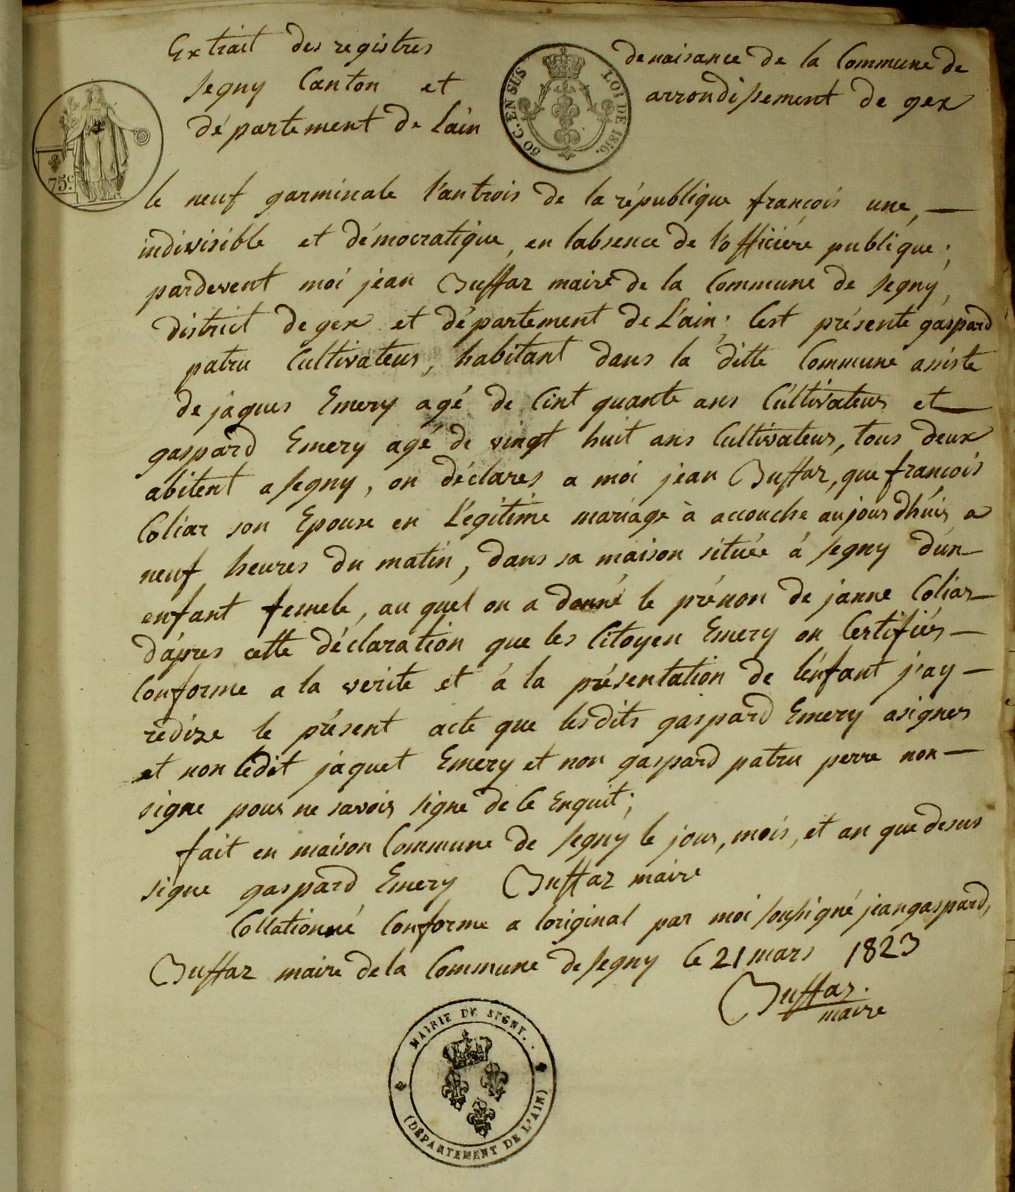 Extrait des registres de naisance de la Commune de
Segny Canton et arrondissement de gex
département de Lain
50 C. EN SUS
LOI DE 1816.
75 c
le neuf garminale l'an trois de la république françois une,
indivisible et démocratique, en labsence de lofficiére publique;
pardevent moi jean Buffaz maire de la Commune de Segny,
district de gex et département de L'ain; C'est présenté gaspard
patru Cultivateur, habitant dans la ditte Commune asiste
de jaques Emery agé de Cint quante ans Cultivateur et
gaspard Emery agé de vingt huit ans Cultivateur, tous deux
abitent a Segny, on déclares a moi jean Buffaz, que françois
Coliar son Epouse en Légitime mariage à accouche aujourdhuis a
neuf heures du matin, dans sa maison située à Segny d'un
enfant femele, au quel on a donné le prénon de janne Coliar
d'apres cette déclaration que les Citoyen Emery on Certifiés
Conforme a la verite et à la présentation de l'enfant j'ay
redize le présent acte que lesdits gaspard Emery asignes
et non ledit jaquet Emery et non gaspard patru perre non
signe pour ne savoir signe de ce Enquit;
fait en maison Commune de Segny le jour, mois, et an que desus
signe gaspard Emery Buffaz maire
Collationné Conforme a loriginal par moi sousigné jeangaspard,
Buffaz maire de la Commune de Segny le 21 mars 1823
Buffaz.
maire
MAIRIE DE SEGNY.
(DÉPARTEMENT DE L'AIN)